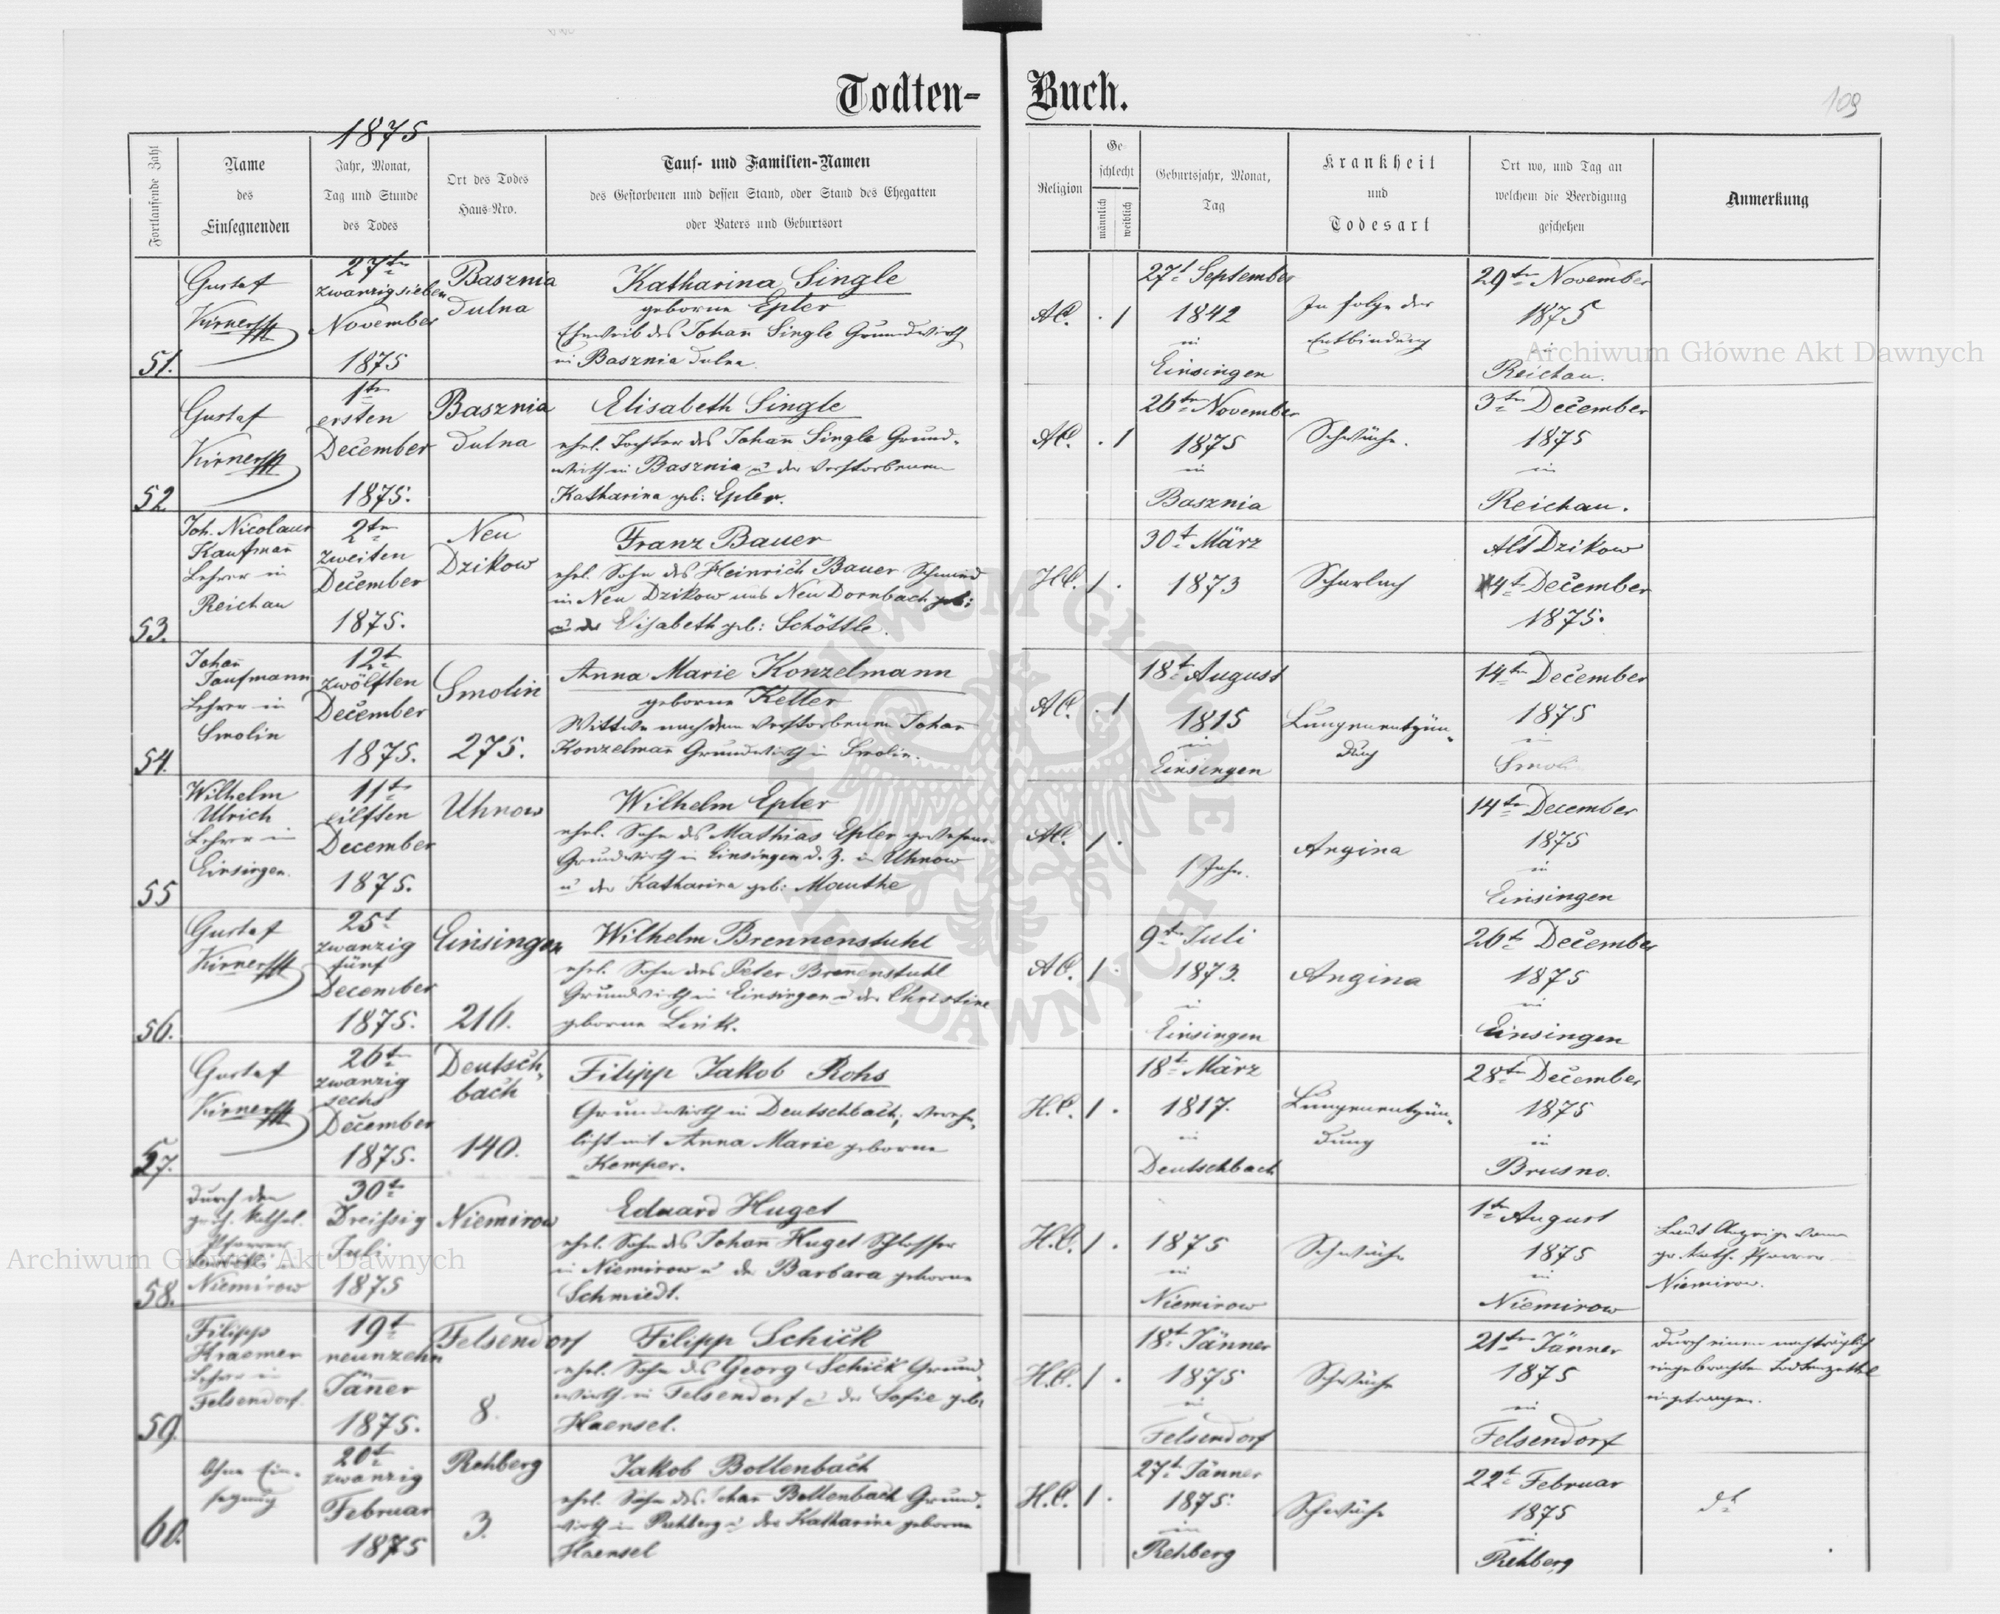 Todten-Buch.
109
1875
Fortlaufende Zahl
Name
des
Einsegnenden
Jahr, Monat,
Tag und Stunde
des Todes
Ort des Todes
Haus-Nro.
Tauf- und Familien-Namen
des Gestorbenen und dessen Stand, oder Stand des Ehegatten
oder Vaters und Geburtsort
Religion
Ge-
schlecht
männlich
weiblich
Geburtsjahr, Monat,
Tag
Krankheit
und
Todesart
Ort wo, und Tag an
welchem die Beerdigung
geschehen
Anmerkung
51.
Gustaf
27ten
zwanzigsieben
November
1875
Basznia
dulna
Katharina Single
geborne Epler
Eheweib des Johan̄ Single Grundwirth
in Basznia dulna
A.C.
. 1
27t September
1842
in
Einsingen
In folge der
Entbindung
29ten November
1875
in
Reichau.
52.
Gustaf
1ten
ersten
December
1875.
Basznia
dulna
Elisabeth Single
ehel. Tochter des Johan̄ Single Grund-
wirth in Basznia u der verstorbenen
Katharina geb: Epler.
A.C.
. 1
26ten November
1875
in
Basznia
Schwäche.
3ten December
1875
in
Reichau.
53.
Joh. Nicolaus
Kaufman̄
Lehrer in
Reichau
2ten
zweiten
December
1875.
Neu
Dzikow
Franz Bauer
ehel. Sohn des Heinrich Bauer Schmied
in Neu Dzikow aus Neu Dornbach geb:
u der Elisabeth geb: Schöttle.
H.C.
1 .
30t März
1873
Scharlach
Alt Dzikow
4ten December
1875.
54.
Johan̄
Kaufmann
Lehrer in
Smolin
12t
zwölften
December
1875.
Smolin
275.
Anna Marie Konzelmann
geborne Keller
Wittwe nach dem verstorbenen Johan
Konzelman̄ Grundwirth in Smolin.
A.C.
. 1
18t August
1815
in
Einsingen
Lungenentzün-
dung
14ten December
1875
in
Smolin
55
Wilhelm
Ulrich
Lehrer in
Einsingen.
11ten
eilften
December
1875.
Uhnow
Wilhelm Epler
ehel. Sohn des Mathias Epler gewesener
Grundwirth in Einsingen d. Z. in Uhnow
u der Katharina geb: Mauthe
A.C.
1 .
1 Jahr.
Angina
14ten December
1875
in
Einsingen
56.
Gustaf
25t
zwanzig
fünf
December
1875.
Einsingen
216.
Wilhelm Brennenstuhl
ehel. Sohn des Peter Bren̄enstuhl
Grundwirth in Einsingen u der Christine
geborne Link.
A.C.
1 .
9ten Juli
1873.
in
Einsingen
Angina
26ten December
1875
in
Einsingen
57.
Gustaf
26ten
zwanzig
sechs
December
1875.
Deutsch-
bach
140.
Filipp Jakob Rohs
Grundwirth in Deutschbach, vereh-
licht mit Anna Marie geborne
Kemper.
H.C.
1 .
18t März
1817.
in
Deutschbach
Lungenentzün-
dung
28ten December
1875
in
Brusno.
58.
Durch den
Pfarrer
Niemirow
30ten
Dreissig
Juli
1875
Niemirow
Eduard Huget
ehel. Sohn des Johan̄ Huget Schlosser
in Niemirow u der Barbara geborne
Schmiedt.
H.C.
1 .
1875
in
Niemirow
Schwäche
1ten August
1875
in
Niemirow
Laut Anzeige vom
gr. kath. Pfarrer
Niemirow.
59.
Filipp
Kraemer
Lehrer in
Felsendorf.
19t
neunzehn
Jän̄er
1875.
Felsendorf
8.
Filipp Schick
ehel. Sohn des Georg Schick Grund-
wirth in Felsendorf u der Sofie geb:
Haensel.
H.C.
1 .
18t Jänner
1875
in
Felsendorf
Schwäche
21ten Jänner
1875
in
Felsendorf
Durch einen nachträglich
eingebrachten Todtenzettel
eingetragen.
60.
Ohne Ein-
segnung
20t
zwanzig
Februar
1875
Rehberg
3.
Jakob Bollenbach
ehel. Sohn des Johan̄ Bollenbach Grund-
wirth in Rehberg u der Katharina geborne
Haensel
H.C.
1 .
27t Jänner
1875.
in
Rehberg
Schwäche
22t Februar
1875
in
Rehberg
dt
Archiwum Główne Akt Dawnych
Archiwum Główne Akt Dawnych
ARCHIWUM GŁÓWNE AKT DAWNYCH